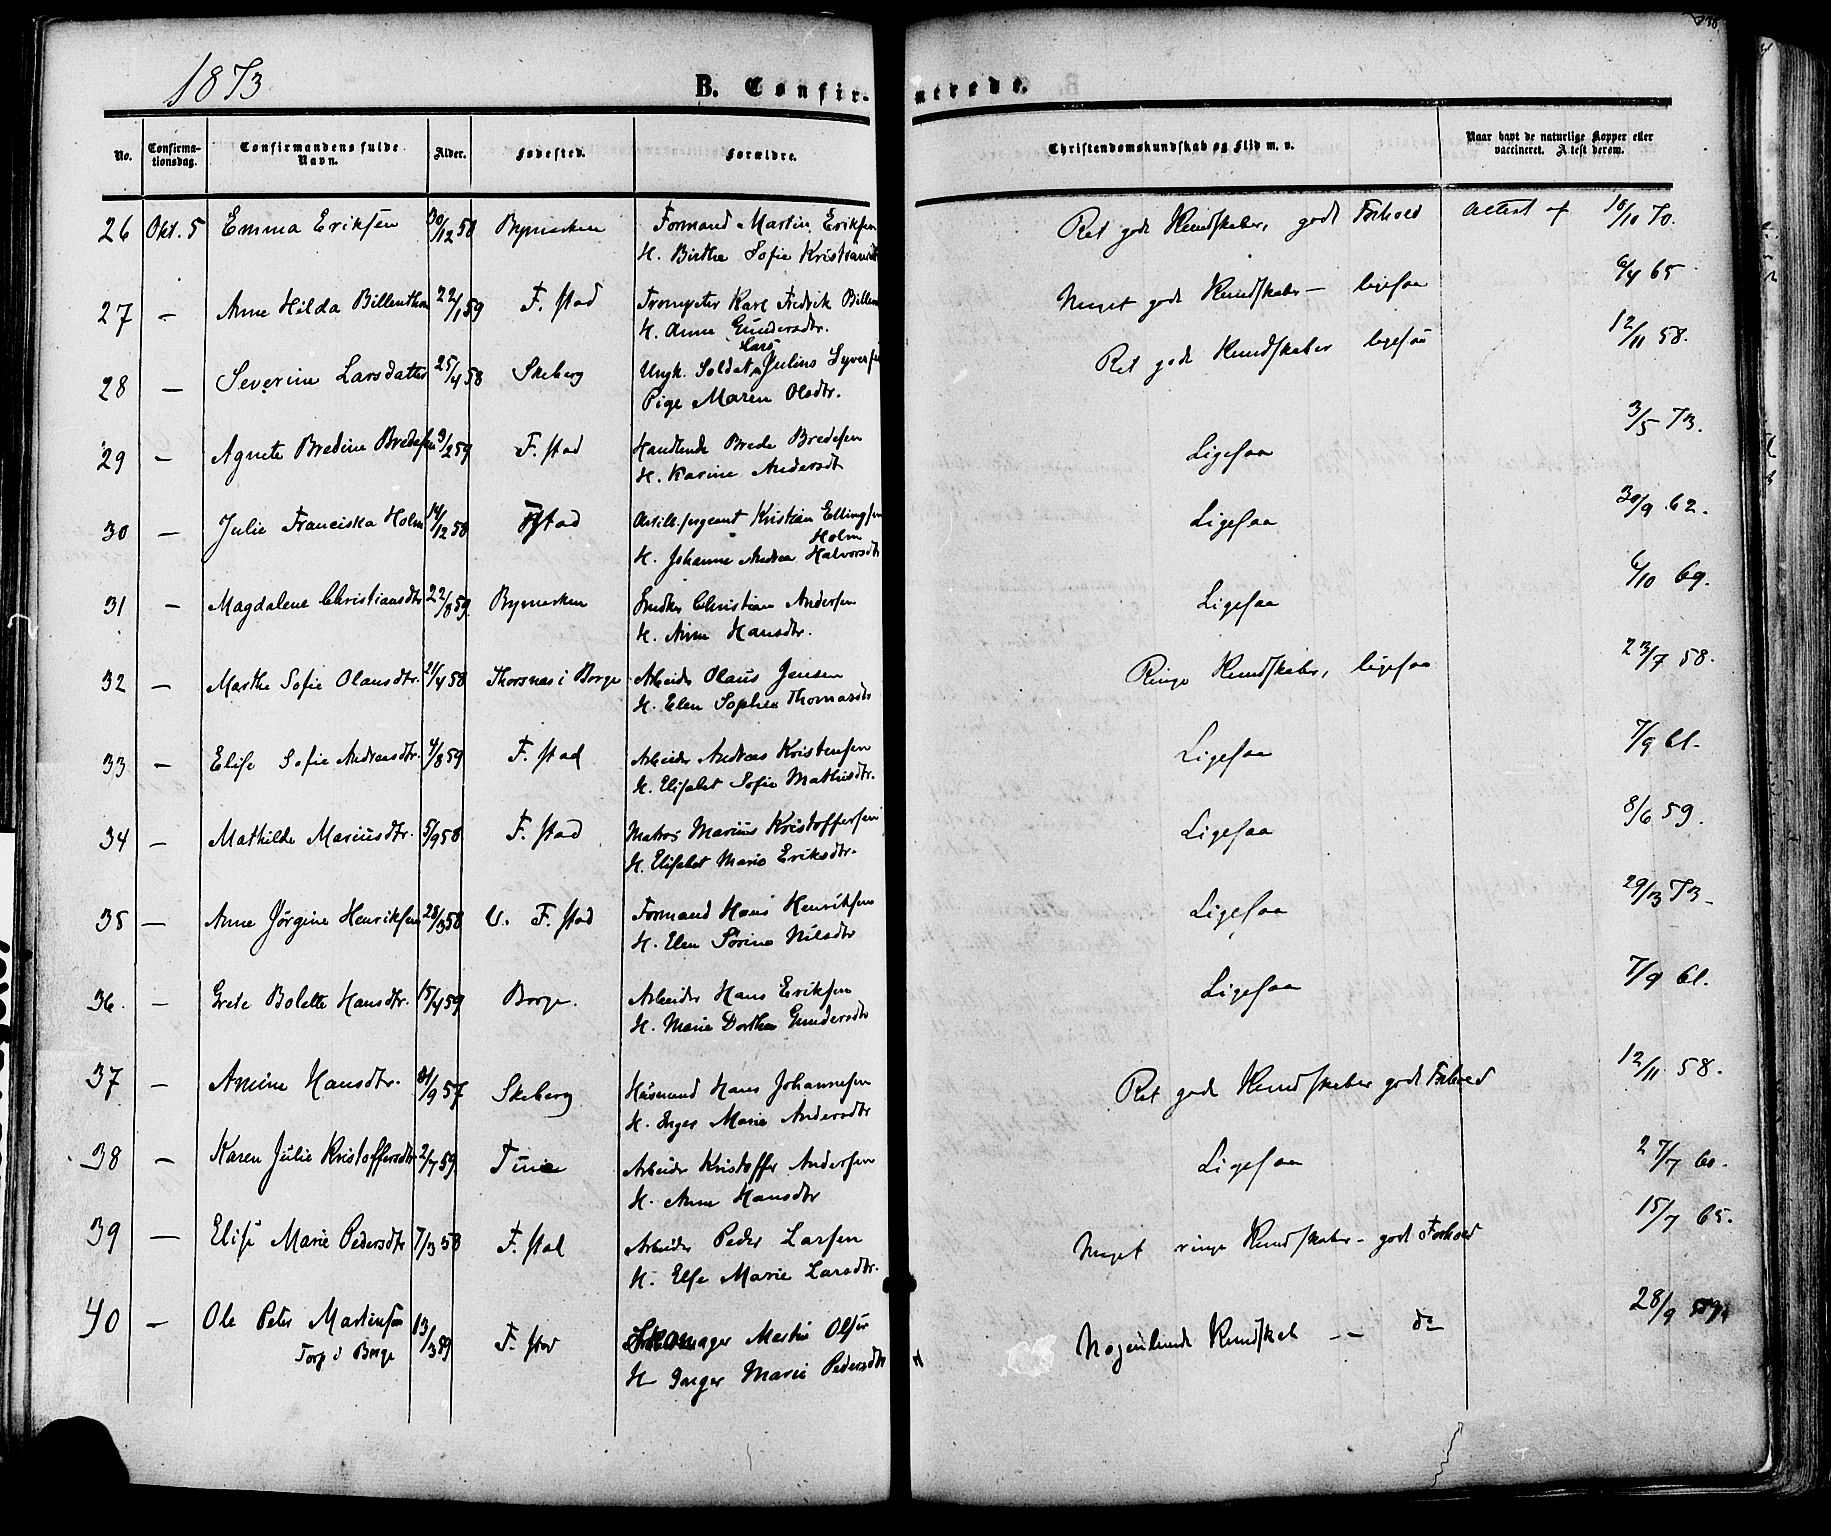 1873
B. Confirmerede.
No. Confirmationsdag. Confirmandens fulde Navn. Alder. Fødested. Forældre. Christendomskundskab og Flid m. v. Naar havt de naturlige Kopper eller vaccineret. Attest derom.
26 Okt. 5 Emma Eriksen 30/12 58 Bymarken Formand Martin Eriksen Ret gode Kundskaber, godt Forhold Attest af 10/10 70.
H. Birthe Sofie Kristiansdt
27 — Anne Hilda Billenthon 22/1 59 F. stad Trompeter Karl Fredrik Meget gode Kundskaber — ligesaa 6/4 65
H. Anne Gundersdtr.
28 — Severine Larsdatter 25/4 58 Skeberg Ungk. Soldat Lars Julius Syvers Ret gode Kundskaber ligesaa 12/11 58.
Pige Maren Olsdtr.
29 — Agnete Bredine Bredesen 9/2 59 F. stad Handlende Brede Bredesen Ligesaa 3/5 73.
H. Karine Andersdt
30 — Julie Franciska Holm 14/12 58 Fstad Artill. sergeant Kristian Ellingsen Holm Ligesaa 30/9 62.
H. Johanne Andrea Halvorsdt
31 — Magdalene Christiansdtr 22/8 59 Bymarken Snedker Christian Andersen Ligesaa 6/10 69.
H. Anne Hansdtr.
32 — Marthe Sofie Olausdtr. 21/4 58 Thorsnæs i Borge Arbeider Olaus Jensen Ringe Kundskaber, ligesaa 23/7 58.
H. Elen Sophie Thomasdt
33 — Elise Sofie Andreasdtr. 4/8 59 F. stad Arbeider Andreas Kristensen Ligesaa 7/9 61.
H. Elisabet Sofie Mathisdtr.
34 — Mathilde Mariusdtr. 5/9 58 F. stad Matros Marius Kristoffersen Ligesaa 8/6 59.
H. Elisabet Marie Eriksdtr.
35 — Anne Jørgine Henriksen 28/3 58 V. F. stad Formand Hans Henriksen Ligesaa 29/3 73
H. Elen Sørine Nilsdtr
36. — Grete Bolette Hansdtr. 15/4 59 Borge. Arbeider Hans Eriksen Ligesaa 7/9 61.
H. Marie Dorthea Gundersdt
37 — Amine Hansdtr. /9 57 Skeberg Husmand Hans Johannesen Ret gode Kundskaber godt Forhold 12/11 58.
H. Inger Marie Andersdtr
38 — Karen Julie Kristoffersdtr 2/7 59 Tune Arbeider Kristoffer Andersen Ligesaa 27/7 60.
H. Anne Hansdtr
39 — Elise Marie Pedersdtr 7/3 58 F. stad Arbeider Peder Larsen Meget ringe Kundskaber — godt Forhold 15/7 65.
H. Else Marie Larsdtr.
40 — Ole Peter Martinsen 13/3 59 F. stad Skomager Martin Olsen Nogenlunde Kundskab — do 28/9 59.
Torp i Borge H— Inger Marie Pedersdtr